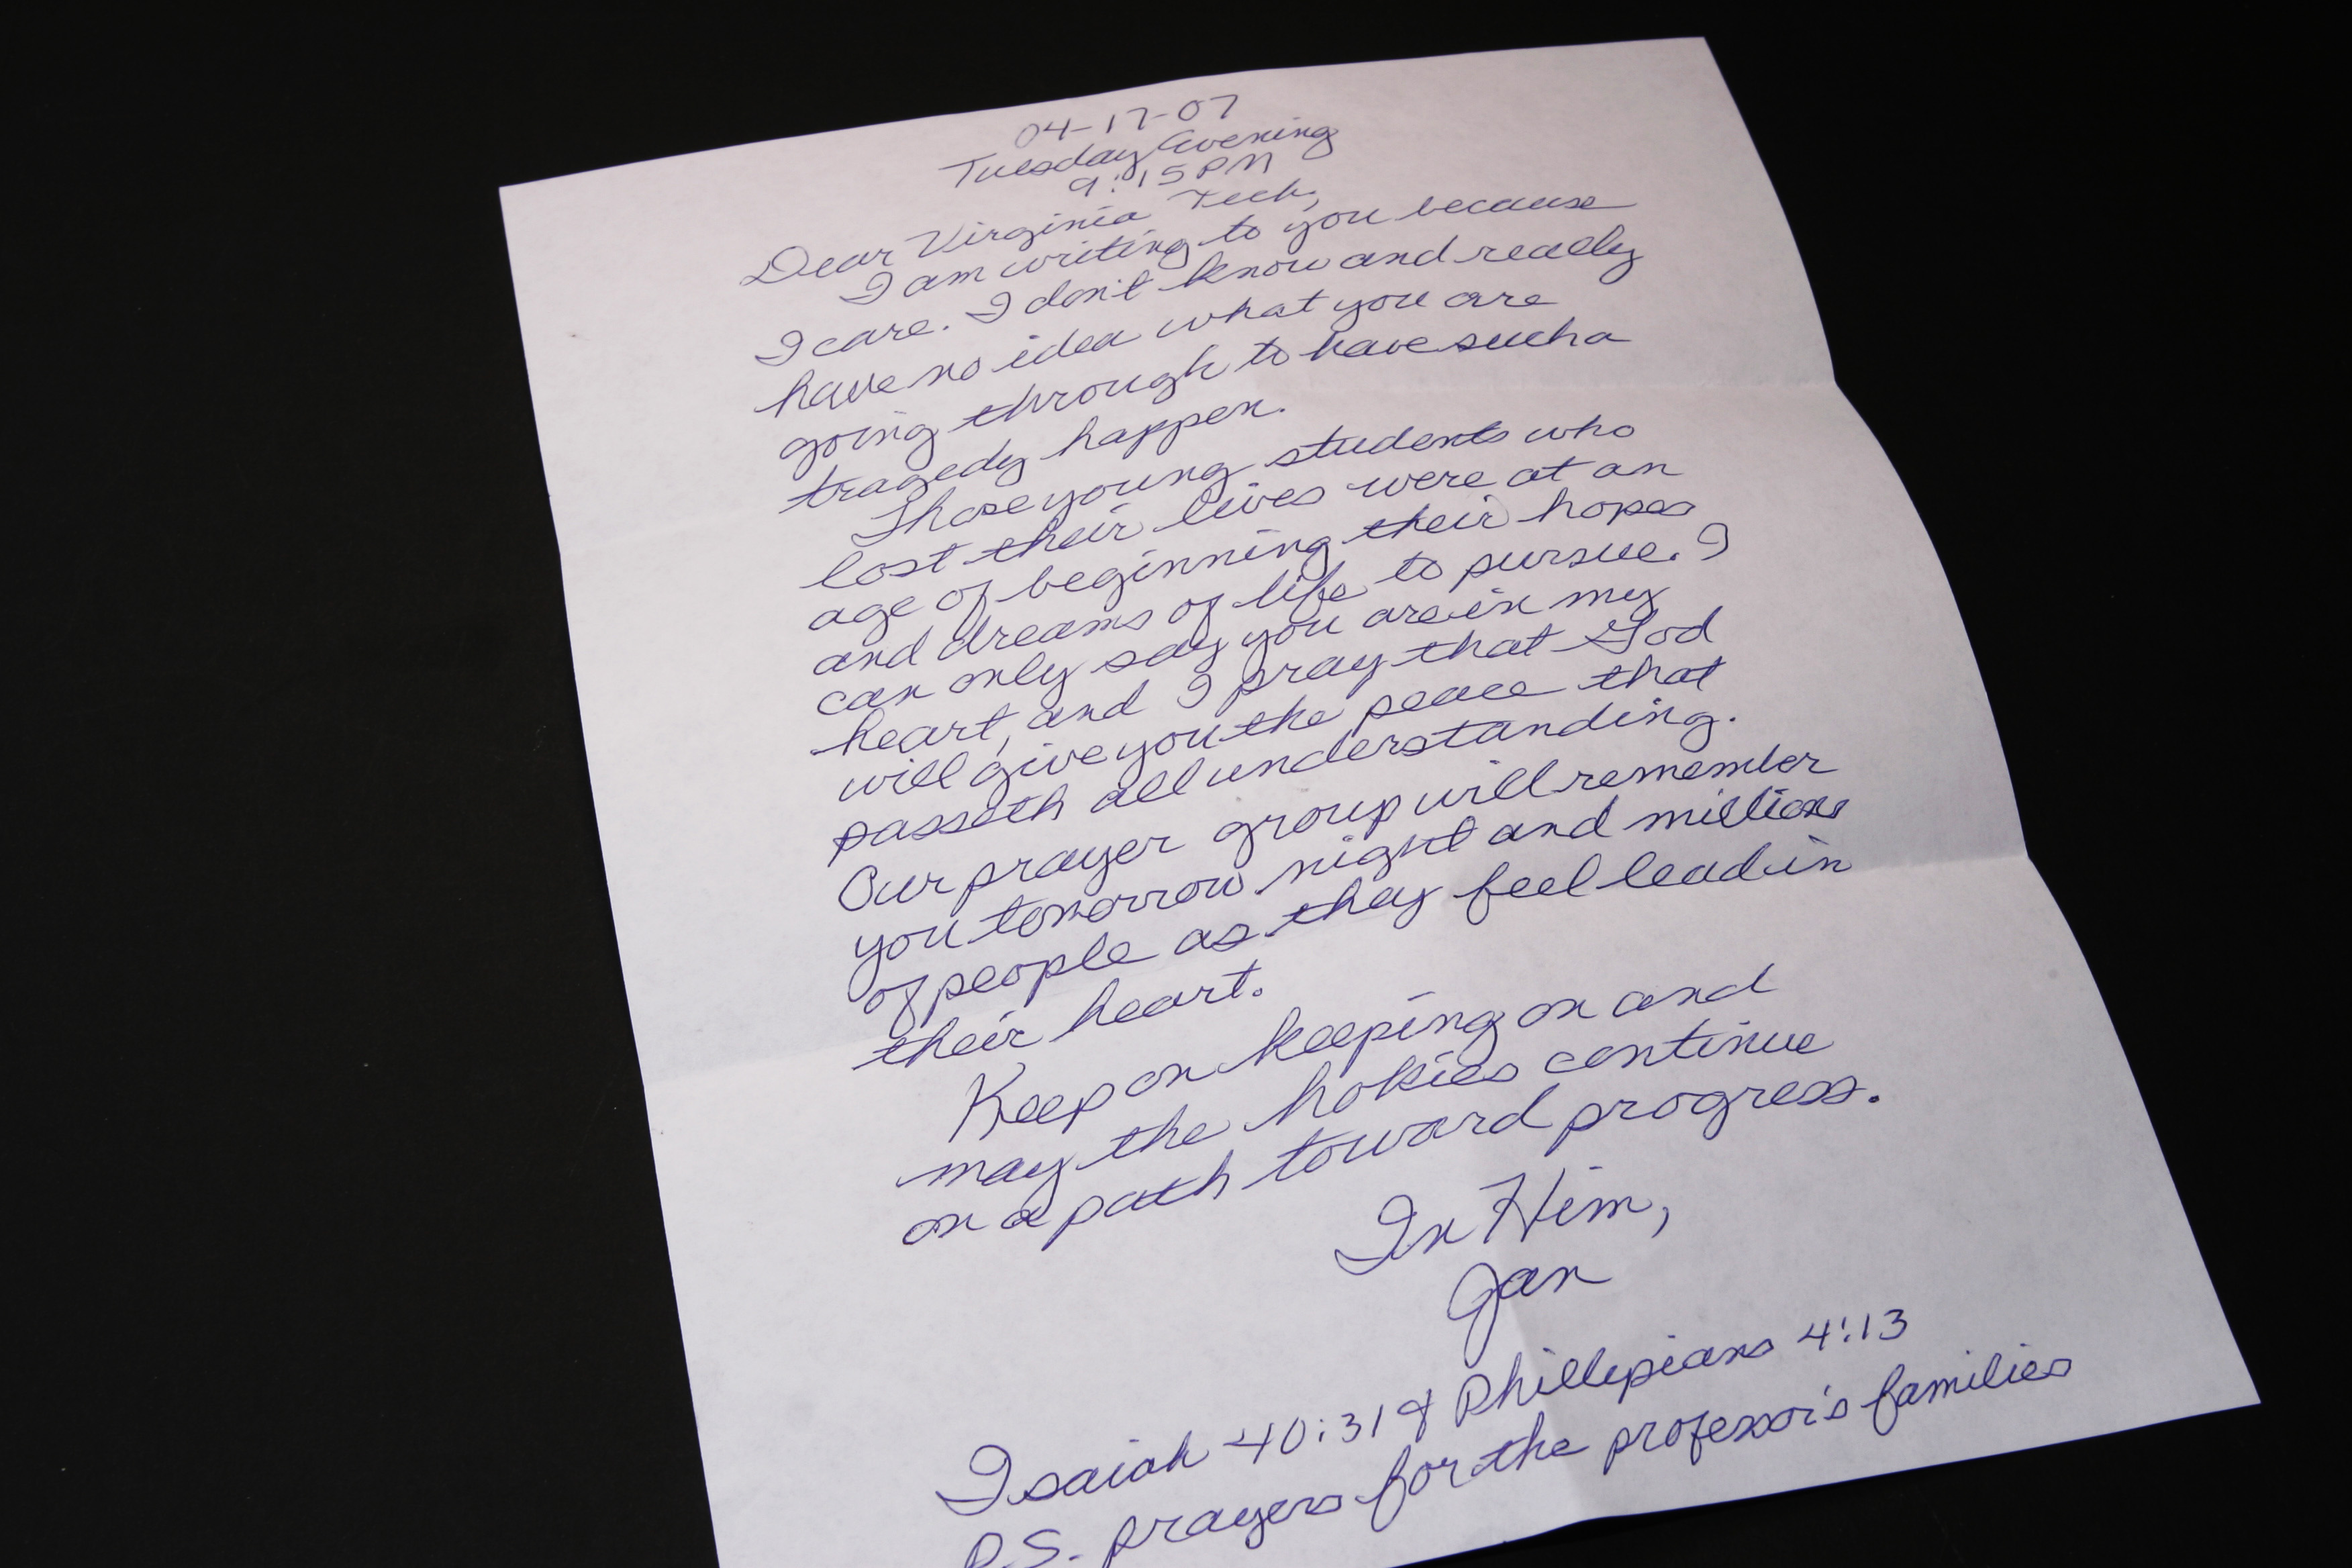 04-17-07
Tuesday Evening
9:15 PM
Dear Virginia Tech,
I am writing to you because
I care. I don't know and really
have no idea what you are
going through to have such a
tragedy happen.
Those young students who
lost their lives were at an
age of beginning their hopes
and dreams of life to pursue. I
can only say you are in my
heart, and I pray that God
will give you the peace that
passeth all understanding.
Our prayer group will remember
you tomorrow night and millions
of people as they feel lead in
their heart.
Keep on keeping on and
may the hokies continue
on a path toward progress.
In Him,
Jan
Isaiah 40:31 & Phillipians 4:13
P.S. prayers for the professor's families